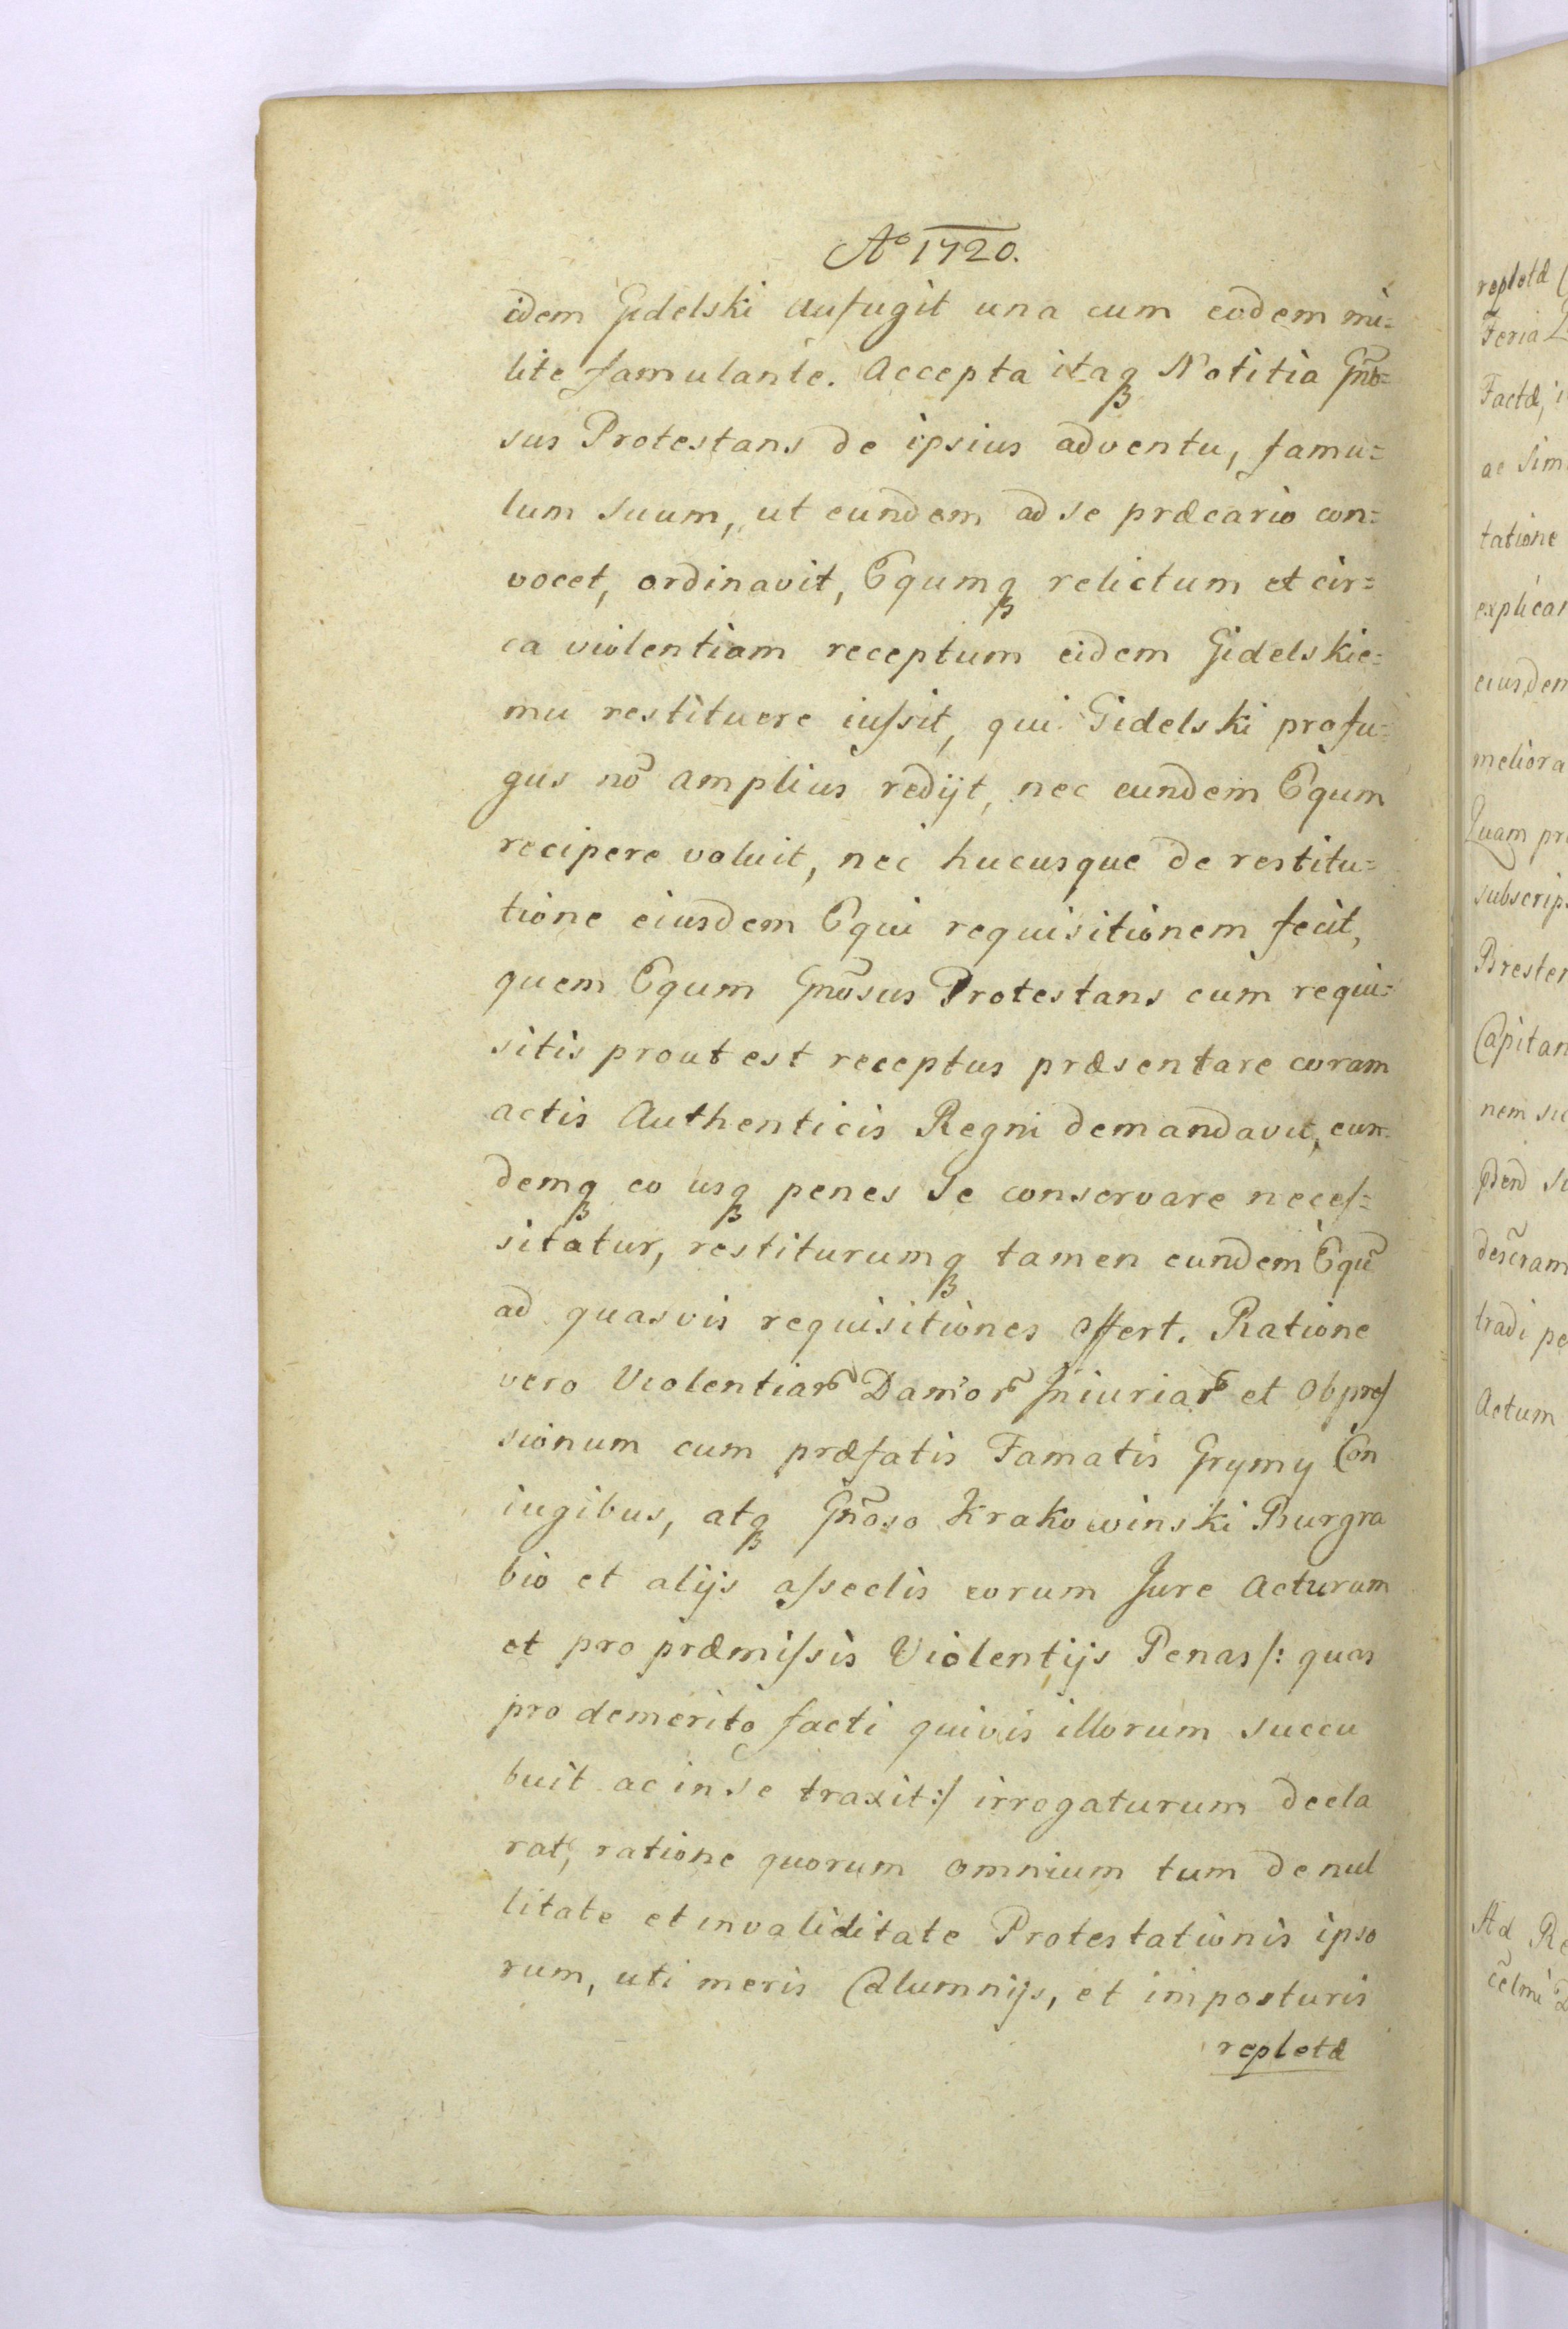 Aº 1720.
idem Gidelski aufugit una cum eodem mi=
lite famulante. Accepta itaqꝫ Notitia Gñō=
sus Protestans de ipsius adventu, famu=
lum suum, ut eundem ad se præcario con=
vocet, ordinavit, Equmqꝫ relictum et cir=
ca violentiam receptum eidem Gidelskie=
mu restituere iuſsit, qui Gidelski profu=
gus nō amplius redijt, nec eundem Equm
recipere voluit, nec hucusque de restitu=
tione eiusdem Equi requisitionem fecit,
quem Equm Gñōsus Protestans cum requi=
sitis prout est receptus præsentare coram
actis Authenticis Regni demandavit, eun=
demqꝫ eo usqꝫ penes Se conservare neceſ=
sitatur, restiturumqꝫ tamen eundem Eqū
ad quasvis requisitiones offert. Ratione
vero Violentiar̄ Dam̄or̄ Iniuriar̄ et Obpreſ
sionum cum præfatis Famatis Grymy Con
iugibus, atqꝫ Gñōso Krakowinski Burgra
bio et alijs aſseclis eorum Jure Acturum
et pro præmiſsis Violentijs Penas /: quas
pro demerito facti quivis illorum succu
buit ac in se traxit :/ irrogaturum decla
rat, ratione quorum omnium tum de nul
litate et invaliditate Protestationis ipso
rum, uti meris Calumnijs, et imposturis
repletæ
repletæ
Feria
Factæ,
ac Sim
tatione
explicar
eiusdem
meliora
Quam pr
subscrip
Brester
Capitan
nem su
tradi pe
Actum
Ad Re